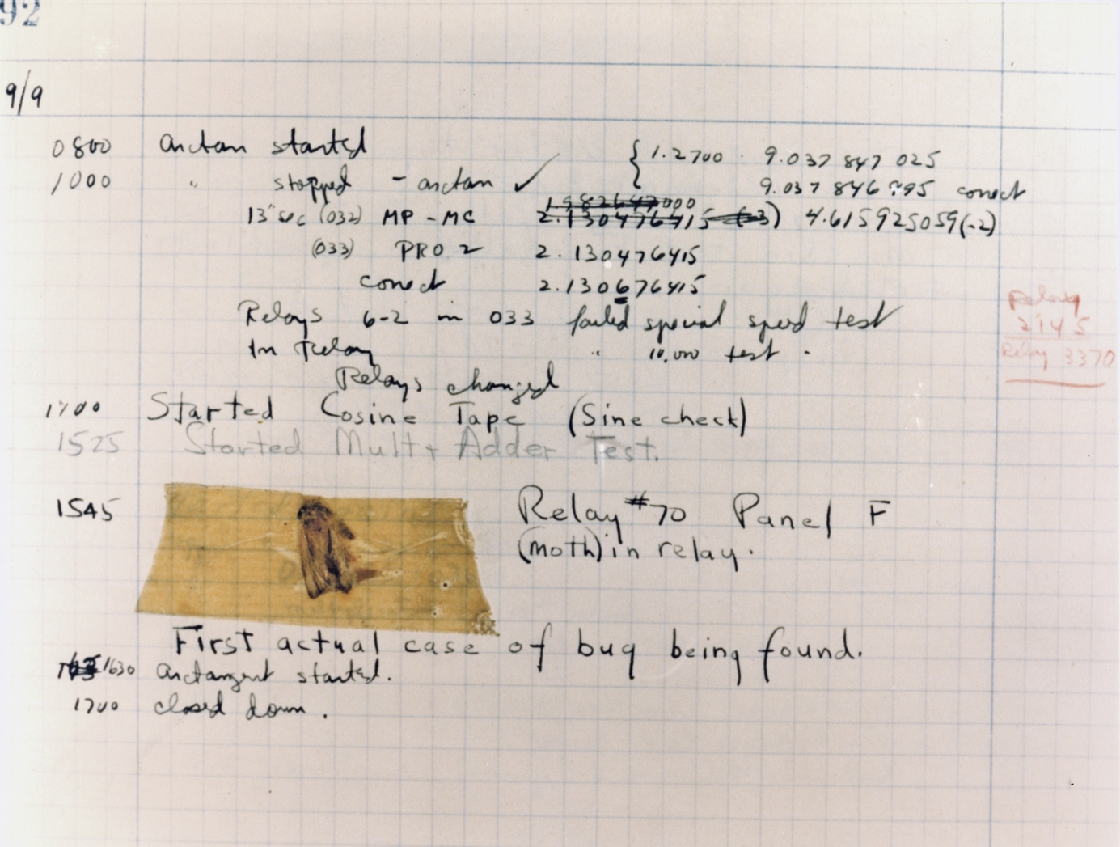 92
9/9
0800 arctan started { 1.2700 9.037 847 025
1000 " stopped - arctan ✓ 9.037 846 995 conect
13"sec (032) MP - MC 2.130476415 (-3) 4.615925059(-2)
(033) PRO 2 2.130476415
conect 2.130676415
Relays 6-2 in 033 failed special speed test
In Relay " 10,000 test .
Relays changed
Relay
2145
Relay 3370
1700 Started Cosine Tape (Sine check)
1525 Started Mult + Adder Test.
1545 Relay #70 Panel F
(moth) in relay.
First actual case of bug being found.
1630 arctangent started.
1700 closed down .